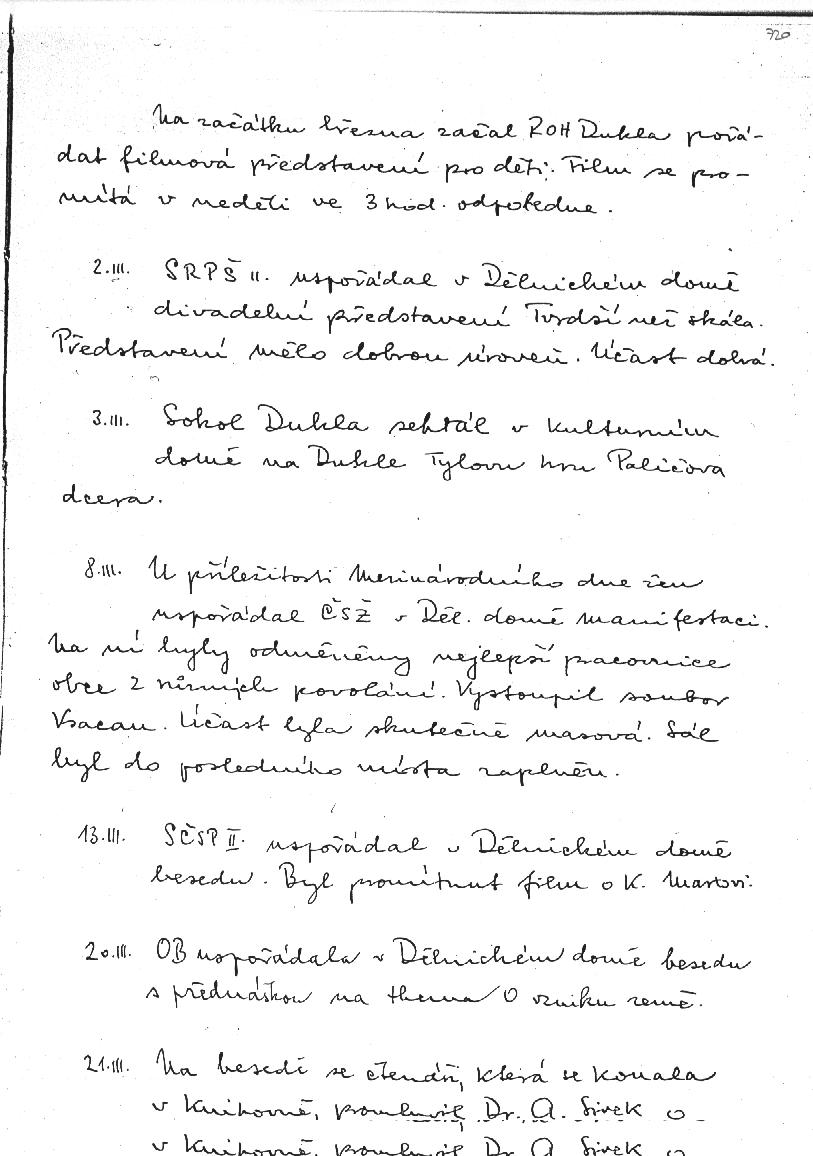 720
Na začátku března začal ROH Dukla pořá-
dat filmová představení pro děti. Film se pro-
mítá v neděli ve 3 hod. odpoledne.
2.III. SRPŠ II. uspořádal v Dělnickém domě
divadelní představení Tvrdší než skála.
Představení mělo dobrou úroveň. Účast dobrá.
3.III. Sokol Dukla sehrál v Kulturním
domě na Dukle Tylovu hru Paličova
dcera.
8.III. U příležitosti Mezinárodního dne žen
uspořádal ČSŽ v Děl. domě manifestaci.
Na ní byly odměněny nejlepší pracovnice
obce z různých povolání. Vystoupil soubor
Vsacan. Účast byla skutečně masová. Sál
byl do posledního místa zaplněn.
13.III. SČSP II. uspořádal v Dělnickém domě
besedu. Byl promítnut film o K. Marxovi.
20.III. OB uspořádala v Dělnickém domě besedu
s přednáškou na thema O vzniku země.
21.III. Na besedě se čtenáři, která se konala
v Knihovně, promluvil Dr. A. Sivek o
v Knihovně, promluvil Dr. A. Sivek o